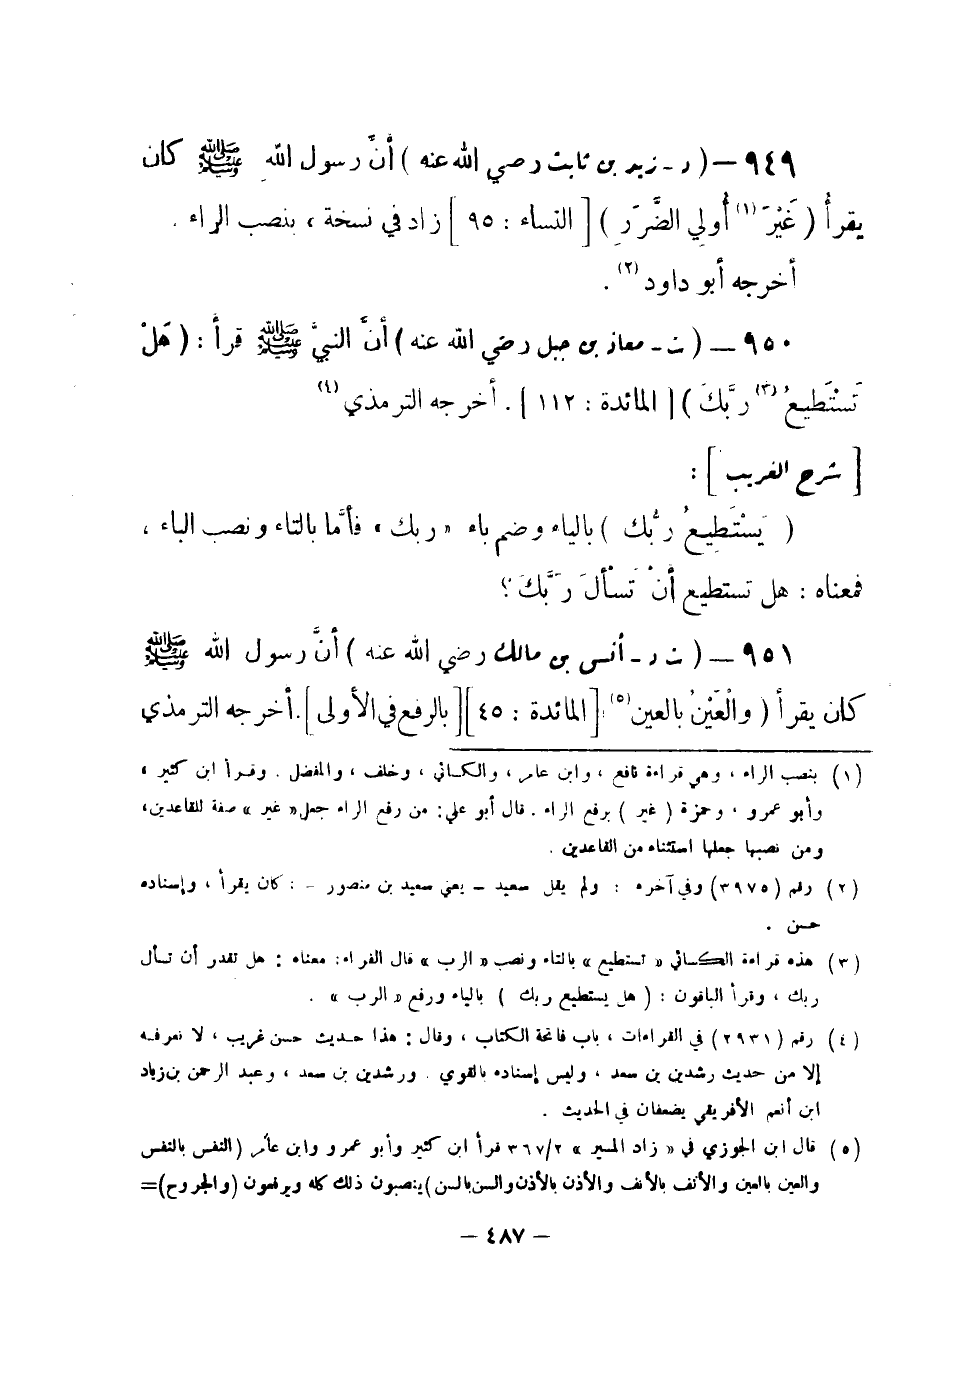 ٩٤٩ – ( د - زيد بن ثابت رضي الله عنه ) أنَّ رسول الله ﷺ كان
يقرأُ ( غَيْرَ (١) أُولي الضَّرَرِ ) [ النساء : ٩٥ ] زاد في نسخة ، بنصب الراء .
أخرجه أبو داود (٢) .
٩٥٠ – ( ت - معاذ بن جبل رضي الله عنه ) أنَّ النبيَّ ﷺ قرأ : ( هَلْ
تَسْتَطيعُ (٣) ربَّكَ ) [ المائدة : ١١٢ ] . أخرجه الترمذي (٤)
[ شرح الغريب ] :
( يَسْتَطِيعُ رُّبك ) بالياء وضم باء « ربك » فأمَّا بالتاء ونصب الباء ،
فمعناه : هل تستطيع أنْ تَسْألَ رَبَّكَ ؟
٩٥١ – ( ت د - أنس بن مالك رضي الله عنه ) أنَّ رسول الله ﷺ
كان يقرأ ( والْعَيْنُ بالعين (٥) [ المائدة : ٤٥ ] [ بالرفع في الأولى ] . أخرجه الترمذي
(١) بنصب الراء ، وهي قراءة نافع ، وابن عامر ، والكسائي ، وخلف ، والمفضل . وقرأ ابن كثير ،
وأبو عمرو ، وحمزة ( غير ) برفع الراء . قال أبو علي : من رفع الراء جعل « غير » صفة للقاعدين،
ومن نصبها جعلها استثناء من القاعدين .
(٢) رقم (٣٩٧٥) وفي آخره : ولم يقل سعيد – يعني سعيد بن منصور – : كان يقرأ ، وإسناده
حسن .
(٣) هذه قراءة الكسائي « تستطيع » بالتاء ونصب « الرب » قال الفراء: معناه : هل تقدر أن تسأل
ربك ، وقرأ الباقون : ( هل يستطيع ربك ) بالياء ورفع « الرب » .
(٤) رقم (٢٩٣١) في القراءات ، باب فاتحة الكتاب ، وقال : هذا حديث حسن غريب ، لا نعرفه
إلا من حديث رشدين بن سعد ، وليس إسناده بالقوي . ورشدين بن سعد ، وعبد الرحمن بن زياد
ابن أنعم الأفريقي يضعفان في الحديث .
(٥) قال ابن الجوزي في « زاد المسير » ٣٦٧/٢ قرأ ابن كثير وأبو عمرو وابن عامر (النفس بالنفس
والعين بالعين والأنف بالأنف والأذن بالأذن والسن بالسن ) ينصبون ذلك كله ويرفعون (والجروح)=
– ٤٨٧ –